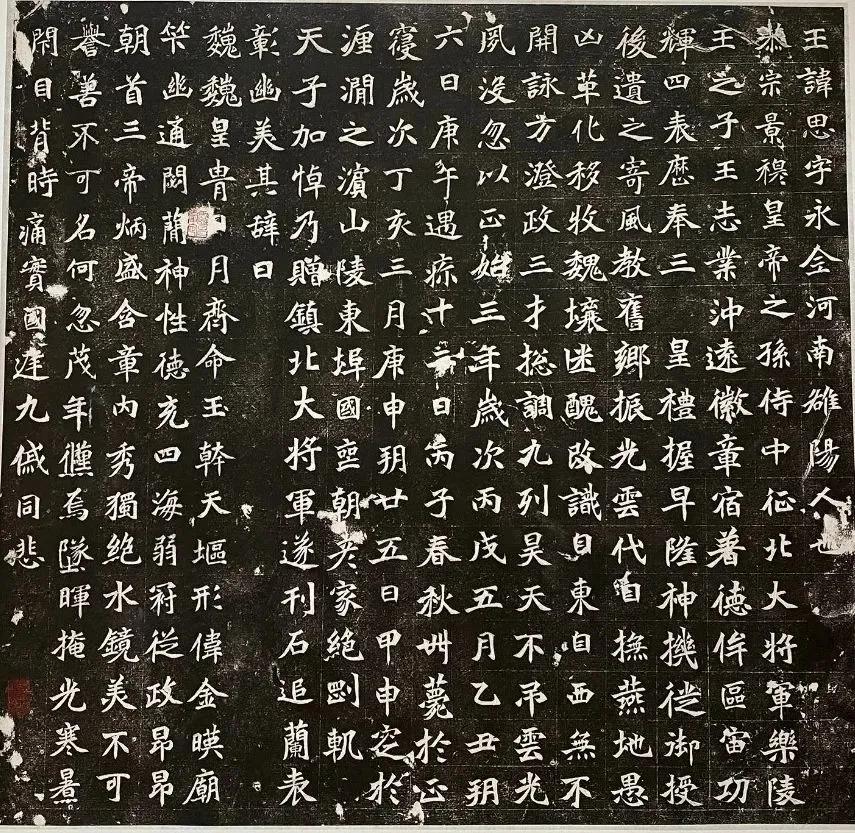 王諱思字永全河南雒陽人也
恭宗景穆皇帝之孫侍中征北大將軍樂陵
王之子王志業沖遠徽章宿著德侔區宙功
輝四表歷奉三皇禮握早隆神機徙御授
後遺之寄風教舊鄉振光雲代自撫燕地愚
凶革化移牧魏壤迷醜改識自東自西無不
開詠方澄政三才揔調九列昊天不弔雲光
夙沒忽以正始三年歲次丙戌五月乙丑朔
六日庚午遇疾十二日丙子春秋卌薨於正
寢歲次丁亥三月庚申玥廿五日甲申窆於
湹澗之濱山陵東埠國喪朝哭家絕剛軌
天子加悼乃贈鎮北大將軍遂刊石追蘭表
彰幽美其辭曰
巍巍皇胄日月齊命玉幹天堀形偉金暎廟
竿幽通閼蘭神性德充四海弱冠從政昂昂
朝首三帝炳盛含章內秀獨絕水鏡美不可
譽善不可名何忽茂年儷焉墜暉掩光寒暑
閇目背時痛實國達九傖同悲